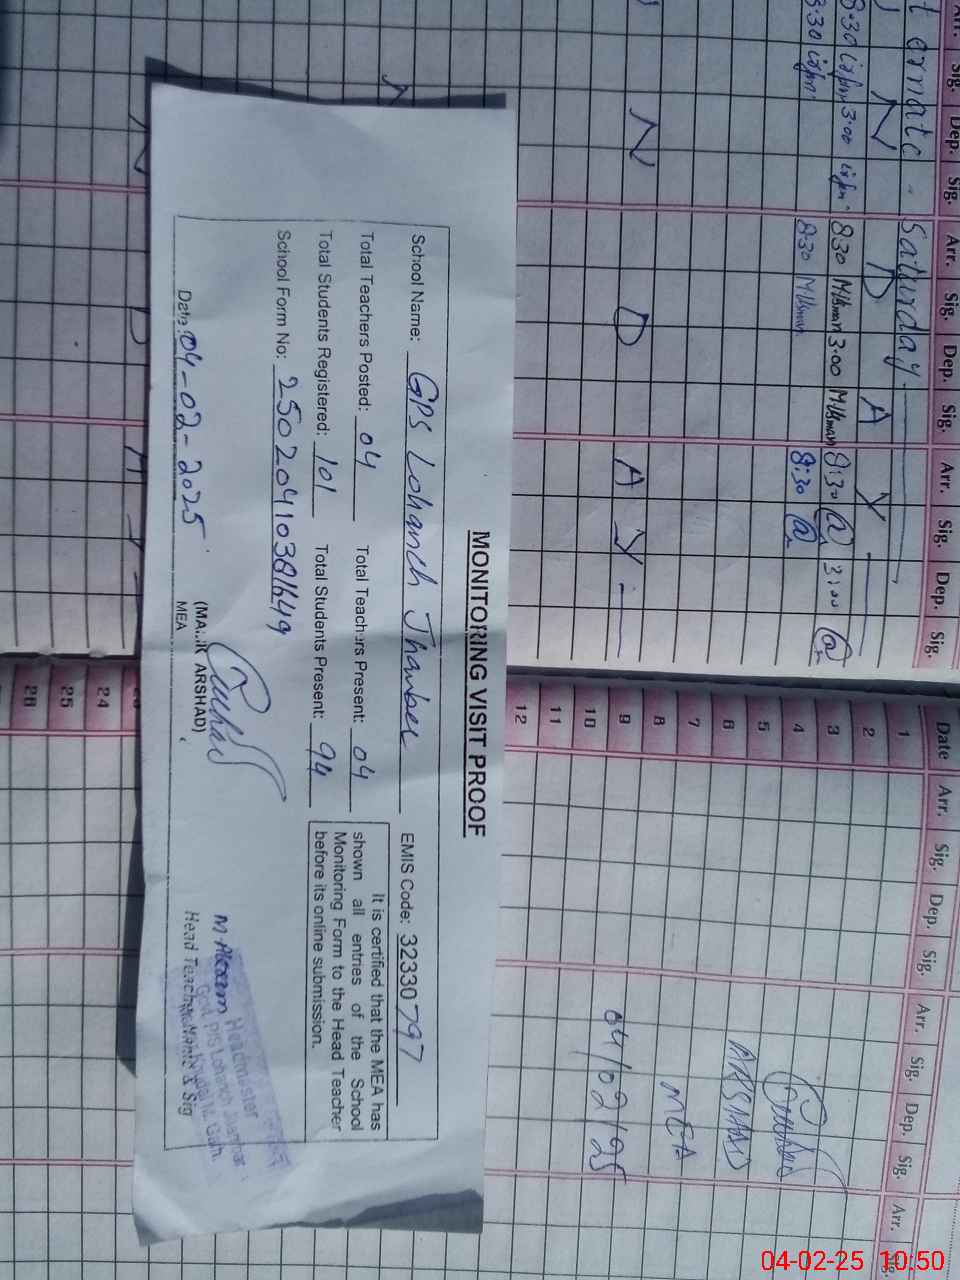 MONITORING VISIT PROOF
School Name: GPS Lohanch Thanbee EMIS Code: 32330797
Total Teachers Posted: 04 Total Teachers Present: 04
Total Students Registered: 101 Total Students Present: 94
It is certified that the MEA has
shown all entries of the School
Monitoring Form to the Head Teacher
before its online submission.
School Form No:
Date: 04-02-2025
(MALIK ARSHAD)
MEA
M Akram Headmaster
Head Teacher Name & Sig
Saturday
Arr. Sig. Dep. Sig. Arr. Sig. Dep. Sig. Arr. Sig. Dep. Sig.
N D A Y
8:30 3:00 8:30 3:00 8:30 3:00
8:30 8:30 8:30
N D A Y
Date Arr. Sig. Dep. Sig. Arr. Sig. Dep. Sig. Arr. Sig.
1
2
3
4
5
6
7
8
9
10
11
12
24
25
26
ARSHAD
MEA
04/02/25
04-02-25 10:50